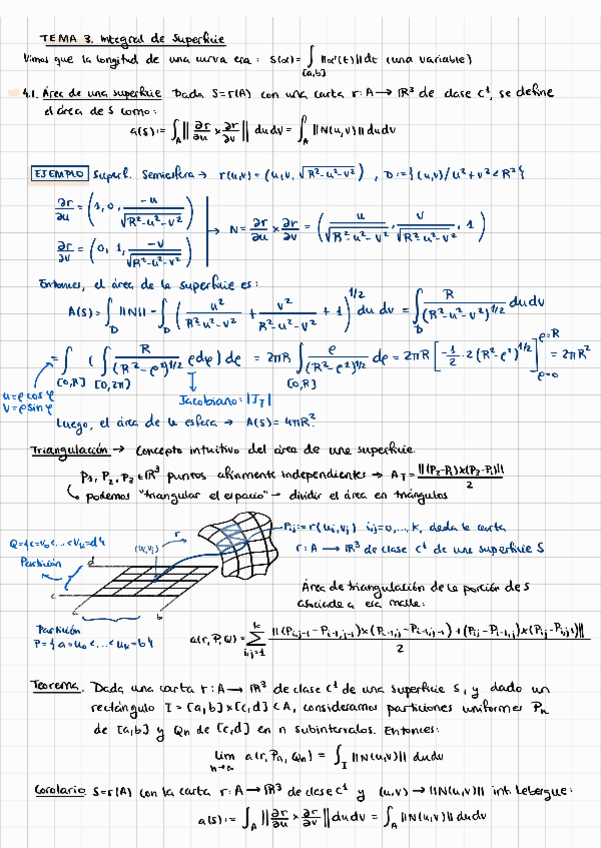 TEMA 3. Integral de Superficie
Vimos que la longitud de una curva era: S(α)= ∫_[a,b] ||α'(t)|| dt (una variable)
4.1. Área de una superficie Dada S=r(A) con una carta r: A → ℝ³ de clase C¹, se define
el área de S como:
a(S):= ∫_A || ∂r/∂u × ∂r/∂v || dudv = ∫_A ||N(u,v)|| dudv
EJEMPLO Superf. Semiesfera → r(u,v) = (u,v, √(R²-u²-v²)) , D:={(u,v)/ u²+v² < R²}
∂r/∂u = (1, 0, -u/√(R²-u²-v²))
→ N = ∂r/∂u × ∂r/∂v = ( u/√(R²-u²-v²), v/√(R²-u²-v²), 1 )
∂r/∂v = (0, 1, -v/√(R²-u²-v²))
Entonces, el área de la superficie es:
A(S) = ∫_D ||N|| = ∫_D ( u²/(R²-u²-v²) + v²/(R²-u²-v²) + 1 )^1/2 du dv = ∫_D R/(R²-u²-v²)^1/2 dudv
= ∫_[0,R] ( ∫_[0,2π] R/(R²-ρ²)^1/2 ρdφ) dρ = 2πR ∫_[0,R] ρ/(R²-ρ²)^1/2 dρ = 2πR [-1/2 · 2 (R²-ρ²)^1/2]_ρ=0^ρ=R = 2πR²
u=ρ cos φ
v=ρ sin φ
Jacobiano: |J_T|
Luego, el área de la esfera → A(S) = 4πR².
Triangulación → Concepto intuitivo del área de una superficie.
P₁, P₂, P₃ ∈ ℝ³ puntos afinmente independientes → A_T = ||(P₂-P₁)×(P₃-P₁)||/2
↳ podemos "triangular el espacio" — dividir el área en triángulos
Q={c=v₀<...<v_k=d}
Partición
d
c
(u_i,v_j)
r
P_ij = r(u_i,v_j) i,j=0,...,k, dada la carta
r: A → ℝ³ de clase C¹ de una superficie S
Área de triangulación de la porción de S
asociada a esa malla:
Partición
P={a=u₀<...<u_k=b}
a(r,P,Q) = ∑_{i,j=1}^k ||(P_i,j-1 - P_i-1,j-1)×(P_i-1,j - P_i-1,j-1)||+||(P_ij - P_i-1,j)×(P_ij - P_i,j-1)||/2
Teorema. Dada una carta r: A → ℝ³ de clase C¹ de una superficie S, y dado un
rectángulo I = [a,b]×[c,d] ⊂ A, consideramos particiones uniformes P_n
de [a,b] y Q_n de [c,d] en n subintervalos. Entonces:
lim_{n→∞} a(r, P_n, Q_n) = ∫_I ||N(u,v)|| dudv
Corolario. S=r(A) con la carta r: A → ℝ³ de clase C¹ y (u,v) → ||N(u,v)|| int. Lebesgue:
a(S):= ∫_A || ∂r/∂u × ∂r/∂v || dudv = ∫_A ||N(u,v)|| dudv